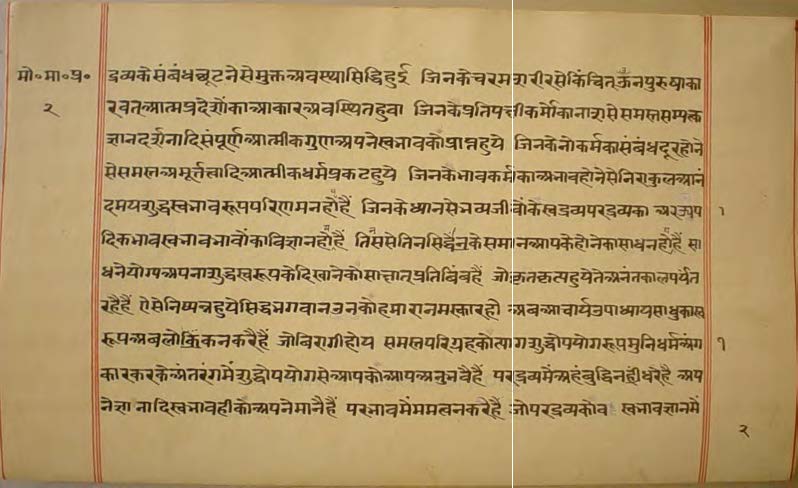 मो॰मा॰प्र॰
२
द्रव्यकेसंबंधछूटनेसेमुक्तअवस्थासिद्धिहुई जिनकेचरमशरीरसेकिंचित्ऊनपुरुषाका
रवत्आत्मप्रदेशोंकाआकारअवस्थितहुवा जिनकेप्रतिपक्षीकर्मोंकानाशसेसमस्तसम्यक्त
ज्ञानदर्शनादिसंपूर्णआत्मीकगुणअपनेस्वभावकोप्राप्तहुये जिनकेनोकर्मकासंबंधदूरहोने
सेसमस्तअमूर्त्तत्वादिआत्मीकधर्मप्रकटहुये जिनकेभावकर्मकाअभावहोनेसेनिराकुलआनं
दमयशुद्धस्वभावरूपपरिणमनहोहैं जिनकेध्यानसेभव्यजीवोंकेस्वद्रव्यपरद्रव्यका
दिकभावस्वभावभावोंकाविज्ञानहोहैं केसमानआपकेहोनेकासाधनहोहैं सा
धनेयोग्यअपनाशुद्धस्वरूपकेदिखानेकोसाक्षात्प्रतिबिंबहैं जोकृतकृत्यहुयेतेअनंतकालपर्यंत
रहैहैं ऐसेनिष्पन्नहुयेसिद्धभगवानउनकोहमारानमस्कारहो अबआचार्यउपाध्यायसाधुकास्व
रूपअवलोकनकरैहैं जोविरागीहोय समस्तपरिग्रहकोत्यागशुद्धोपयोगरूपमुनिधर्मअंग
१
कारकरकेअंतरंगमेंशुद्धोपयोगसेआपकोआपअनुभवैहैं परद्रव्यमेंअहंबुद्धिनहींधरेहै अप
नेज्ञानादिस्वभावहीकोअपनेमानैहैं परभावमेंममत्वनकरैहैं जोपरद्रव्यकोव स्वभावज्ञानमें
२